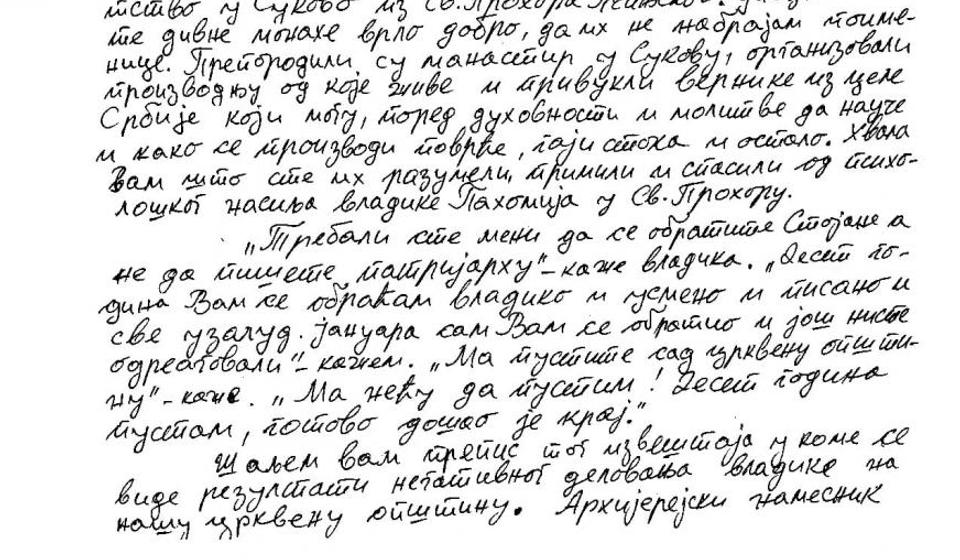 тство у Суково из Св. Прохора
те дивне монахе врло добро, да их не набрајам поиме-
нице. Препородили су манастир у Сукову, организовали
производњу од које живе и привукли вернике из целе
Србије који могу, поред духовности и молитве да науче
и како се производи поврће, гаји стока и остало. Хвала
Вам што сте их разумели, примили и спасили од психо-
лошког насиља владике Пахомија у Св. Прохору.
„Требали сте мени да се обратите Стојане а
не да пишете патријарху" – каже владика. „Десет го-
дина Вам се обраћам владико и усмено и писано и
све узалуд. Јануара сам Вам се обратио и још нисте
одреаговали" – кажем. „Ма пустите сад црквену општи-
ну" – каже. „Ма нећу да пустим! Десет година
пустам, готово дошао је крај."
Шаљем вам препис тог извештаја у коме се
виде резултати негативног деловања владике на
нашу црквену општину. Архијерејски намесник